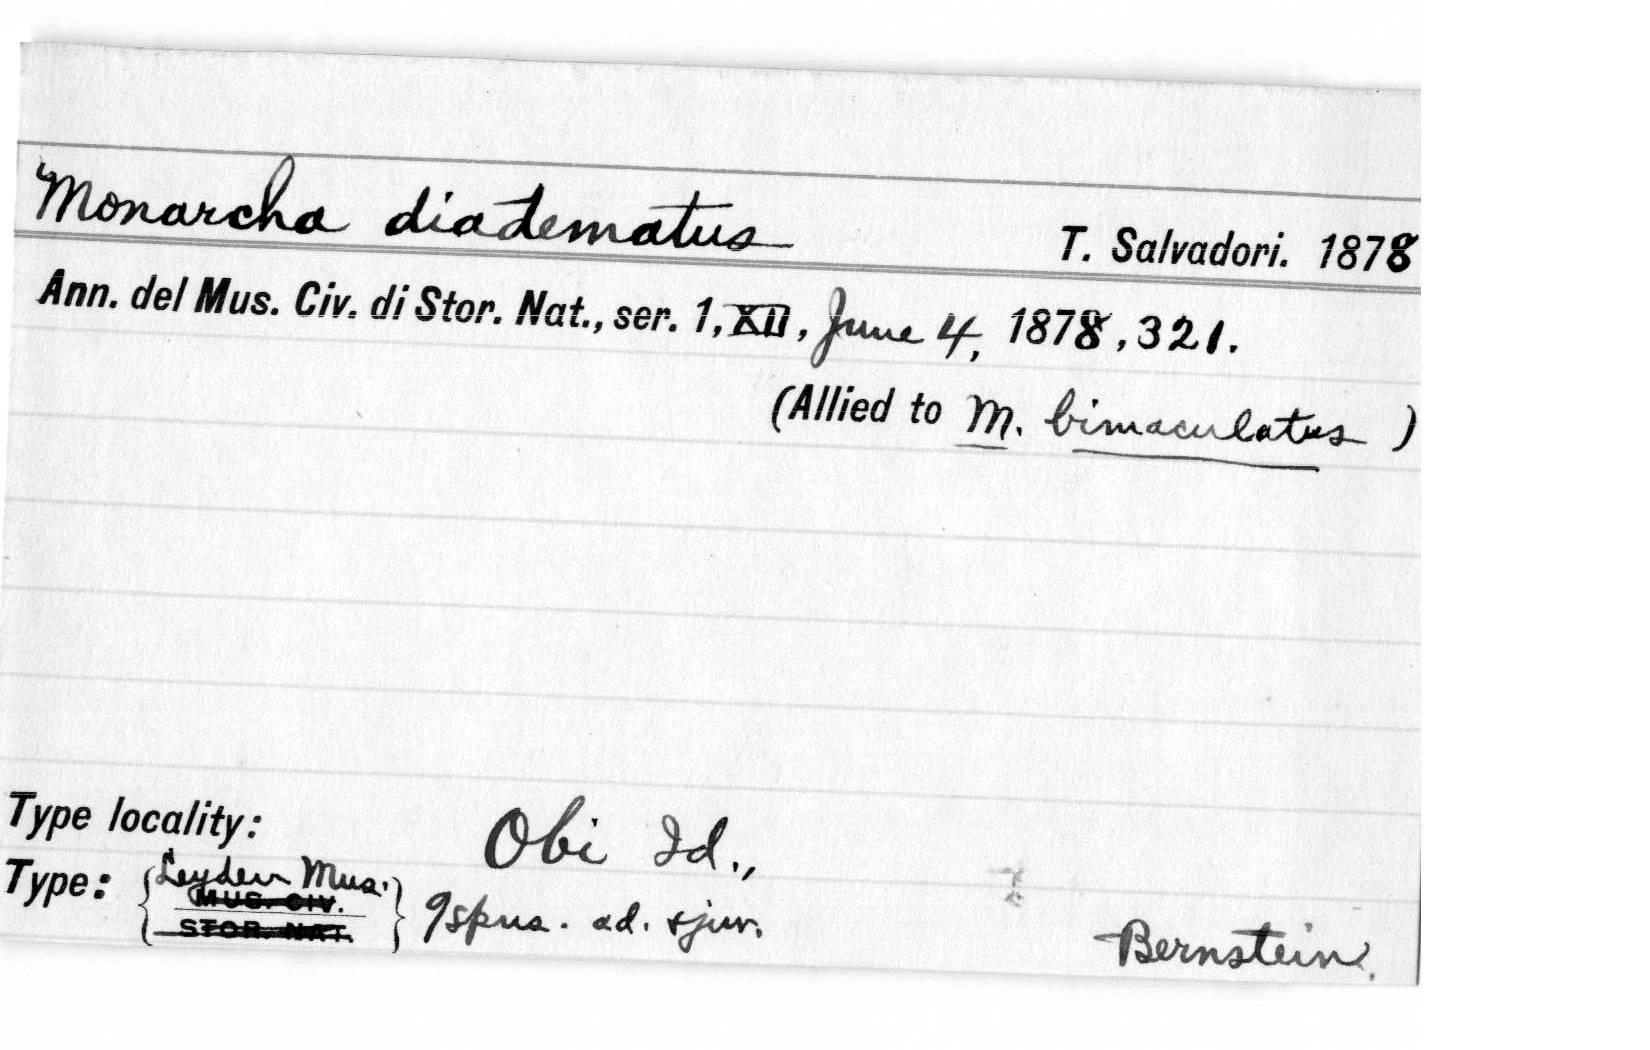 Monarcha diadematus T. Salvadori. 1878
Ann. del Mus. Civ. di Stor. Nat., ser. 1, XII, June 4, 1878, 321.
(Allied to M. bimaculatus )
Type locality: Obi Id.,
Type: { Leyden Mus. } 9 spns. ad. + juv.
MUS. CIV.
STOR. NAT.
Bernstein.